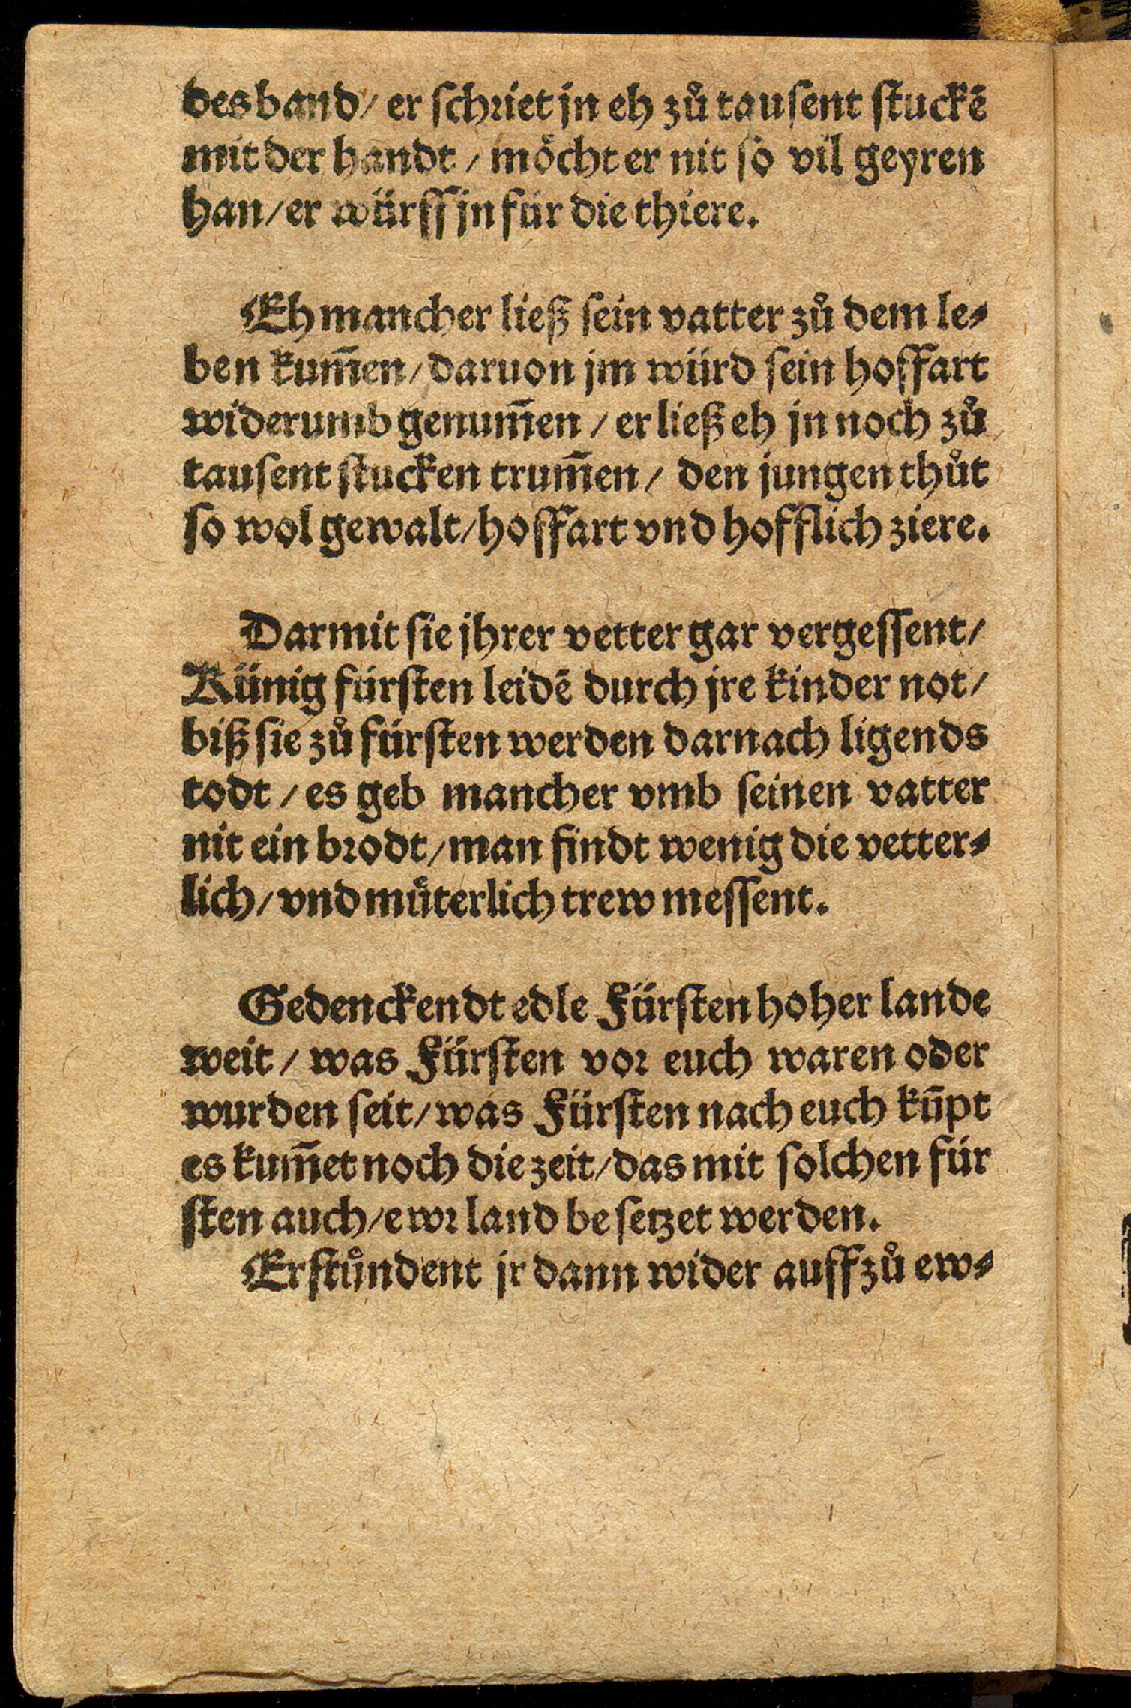 des band / er schriet jn eh zů tausent stuckē
mit der handt / möcht er nit so vil geyren
han / er würff jn für die thiere.
Eh mancher ließ sein vatter zů dem le⸗
ben kum̄en / daruon jm würd sein hoffart
widerumb genum̄en / er ließ eh jn noch zů
tausent stucken trum̄en / den jungen thůt
so wol gewalt / hoffart vnd hofflich ziere.
Darmit sie jhrer vetter gar vergessent /
Künig fürsten leidē durch jre kinder not /
biß sie zů fürsten werden darnach ligends
todt / es geb mancher vmb seinen vatter
nit ein brodt / man findt wenig die vetter⸗
lich / vnd můterlich trew messent.
Gedenckendt edle Fürsten hoher lande
weit / was Fürsten vor euch waren oder
wurden seit / was Fürsten nach euch kūpt
es kum̄et noch die zeit / das mit solchen für
sten auch / ewr land besetzet werden.
Erstůndent jr dann wider auff zů ew⸗